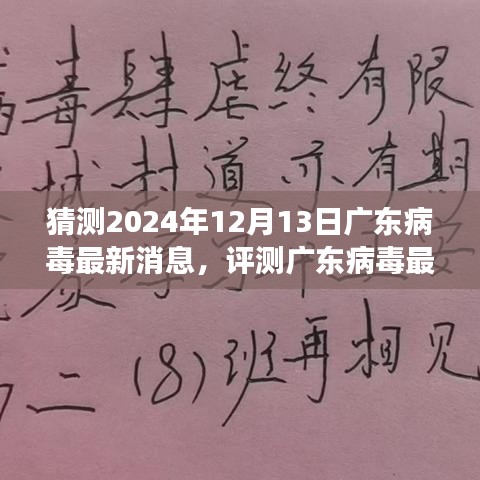 病毒肆虐终有限
城封道亦有期
猜测2024年12月13日广东病
毒最新消息，评测广东病毒最
二(8)班再相见